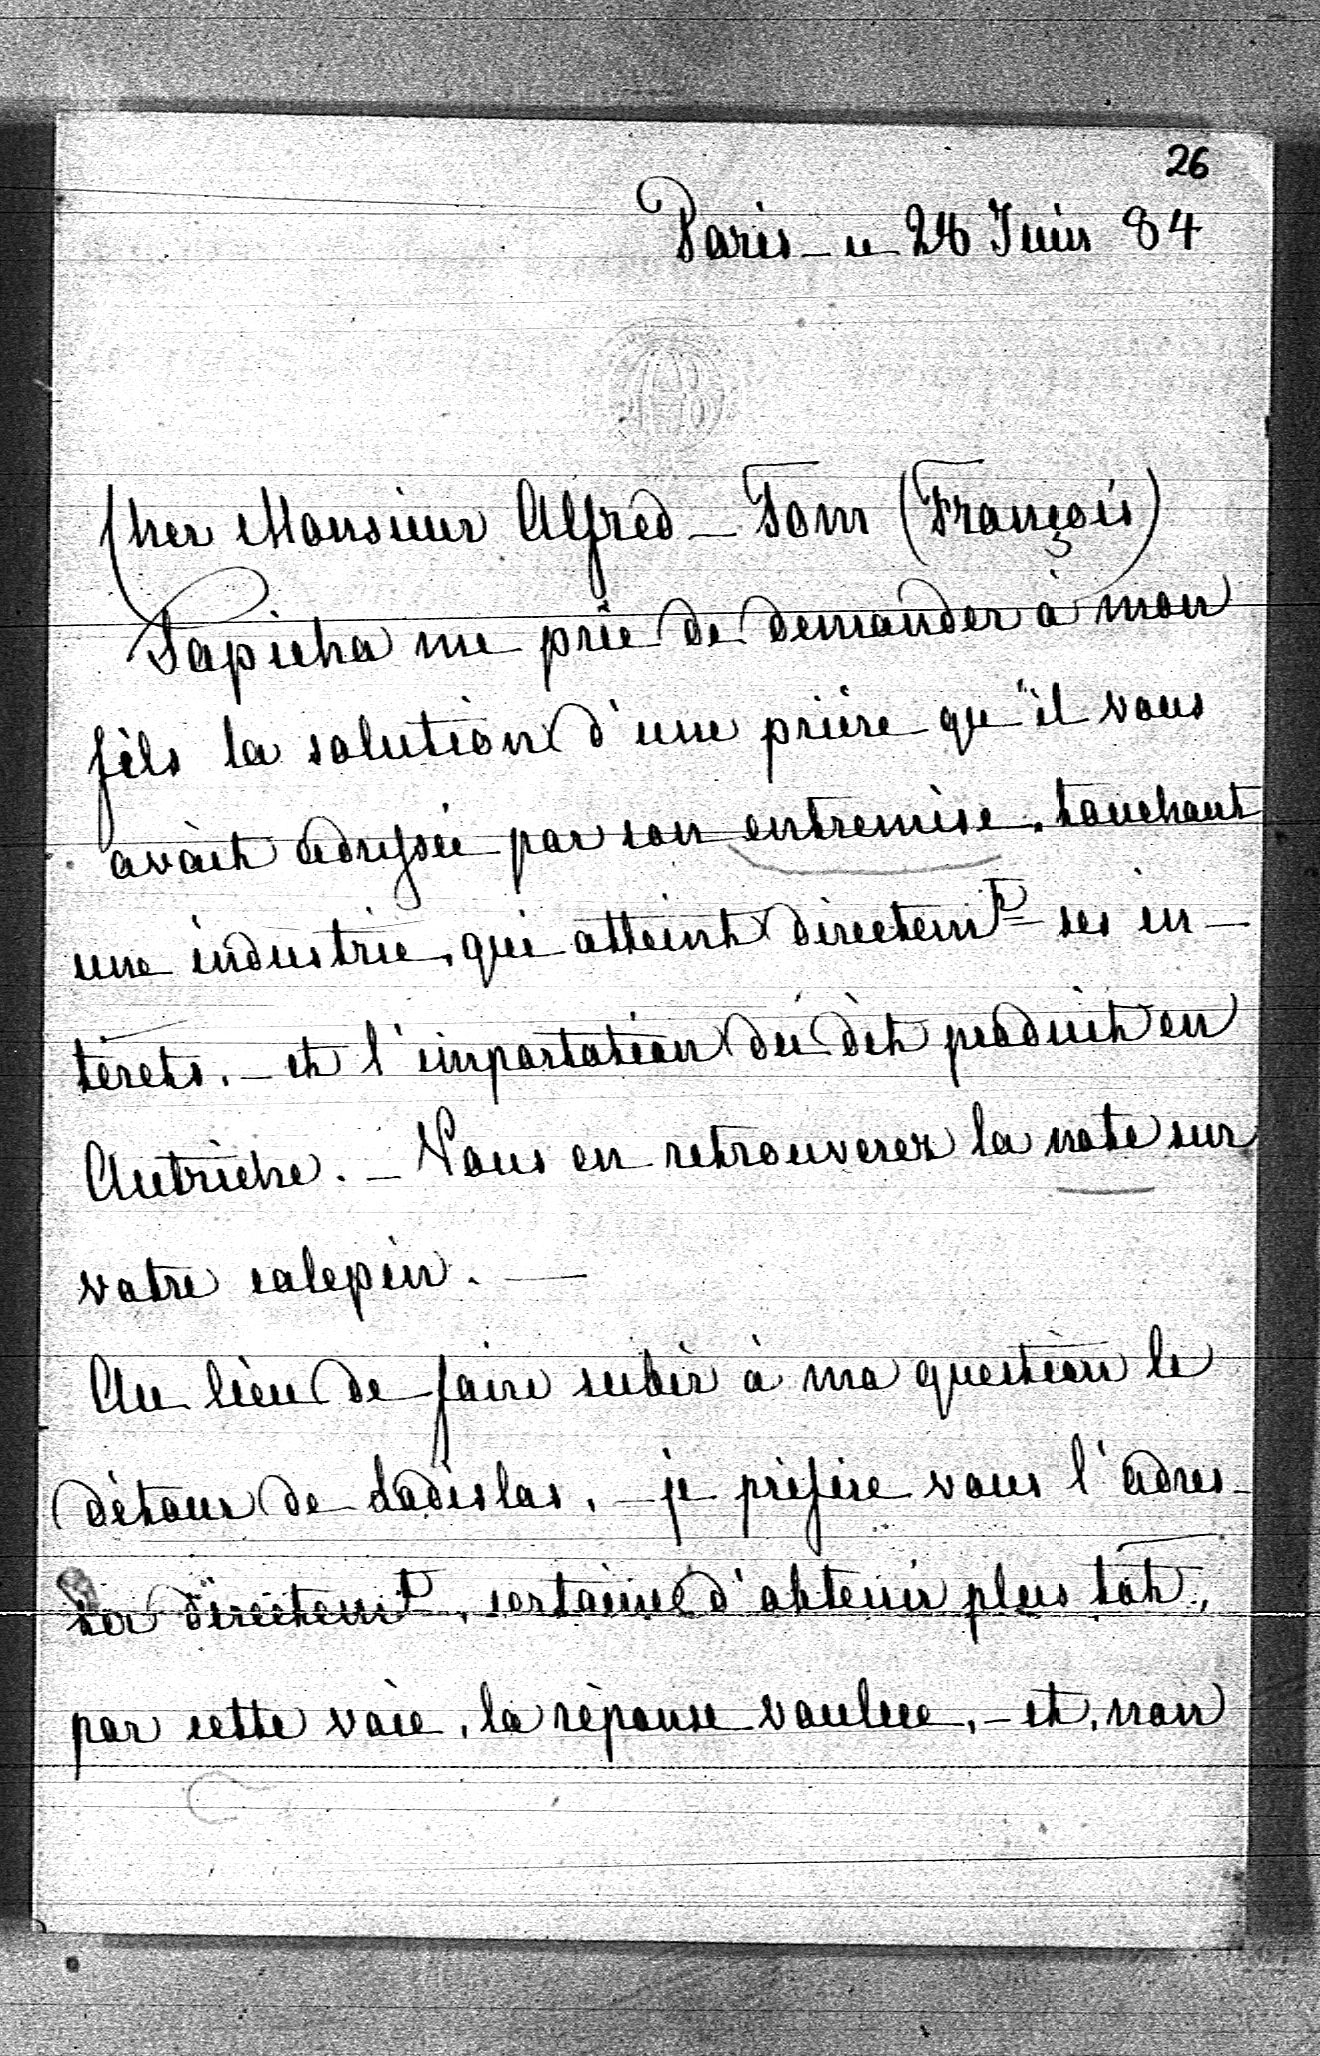 26
Paris - ce 28 Juin 84
Cher Monsieur Alfred - Tom (François)
Sapieha me prie de demander à mon
fils la solution d'une prière qu'il vous
avait adressée par son entremise, touchant
une industrie, qui atteint directemt ses in-
térets. - et l'importation du dit produit en
Autriche. - Vous en retrouverez la note sur
votre calepin. -
Au lieu de faire subir à ma question le
détour de Ladislas, - je préfère vous l'adres-
ser directemt, certaine d'obtenir plus tôt,
par cette voie, la réponse voulue, - et, non